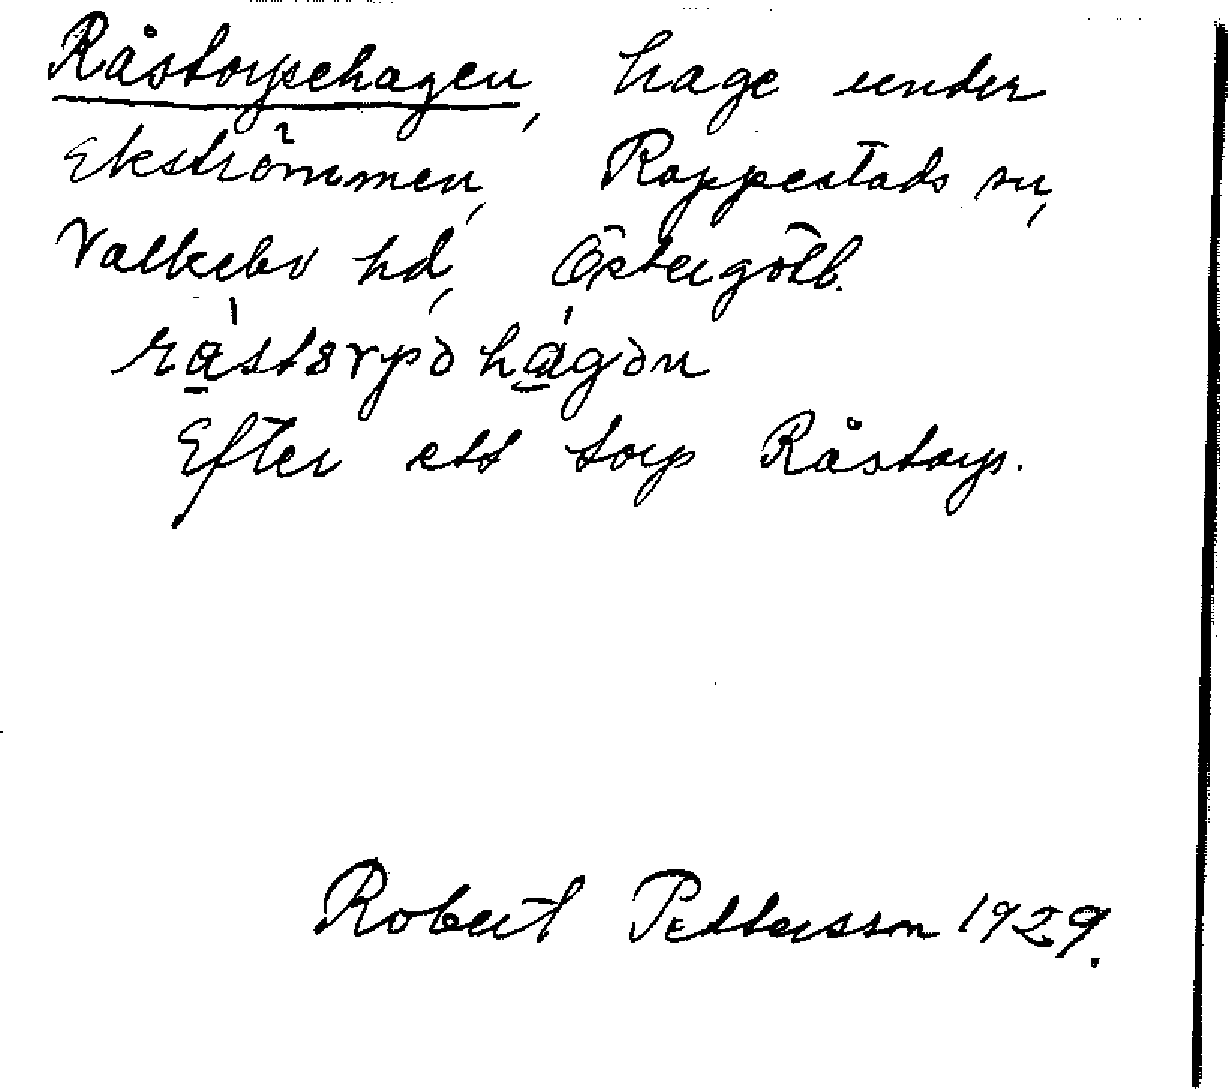 Råstorpehagen, hage under
Ekströmmen, Rappestads sn,
Valkebo hd, Östergötl.
Efter ett torp Råstorp.
Robert Pettersson 1929.